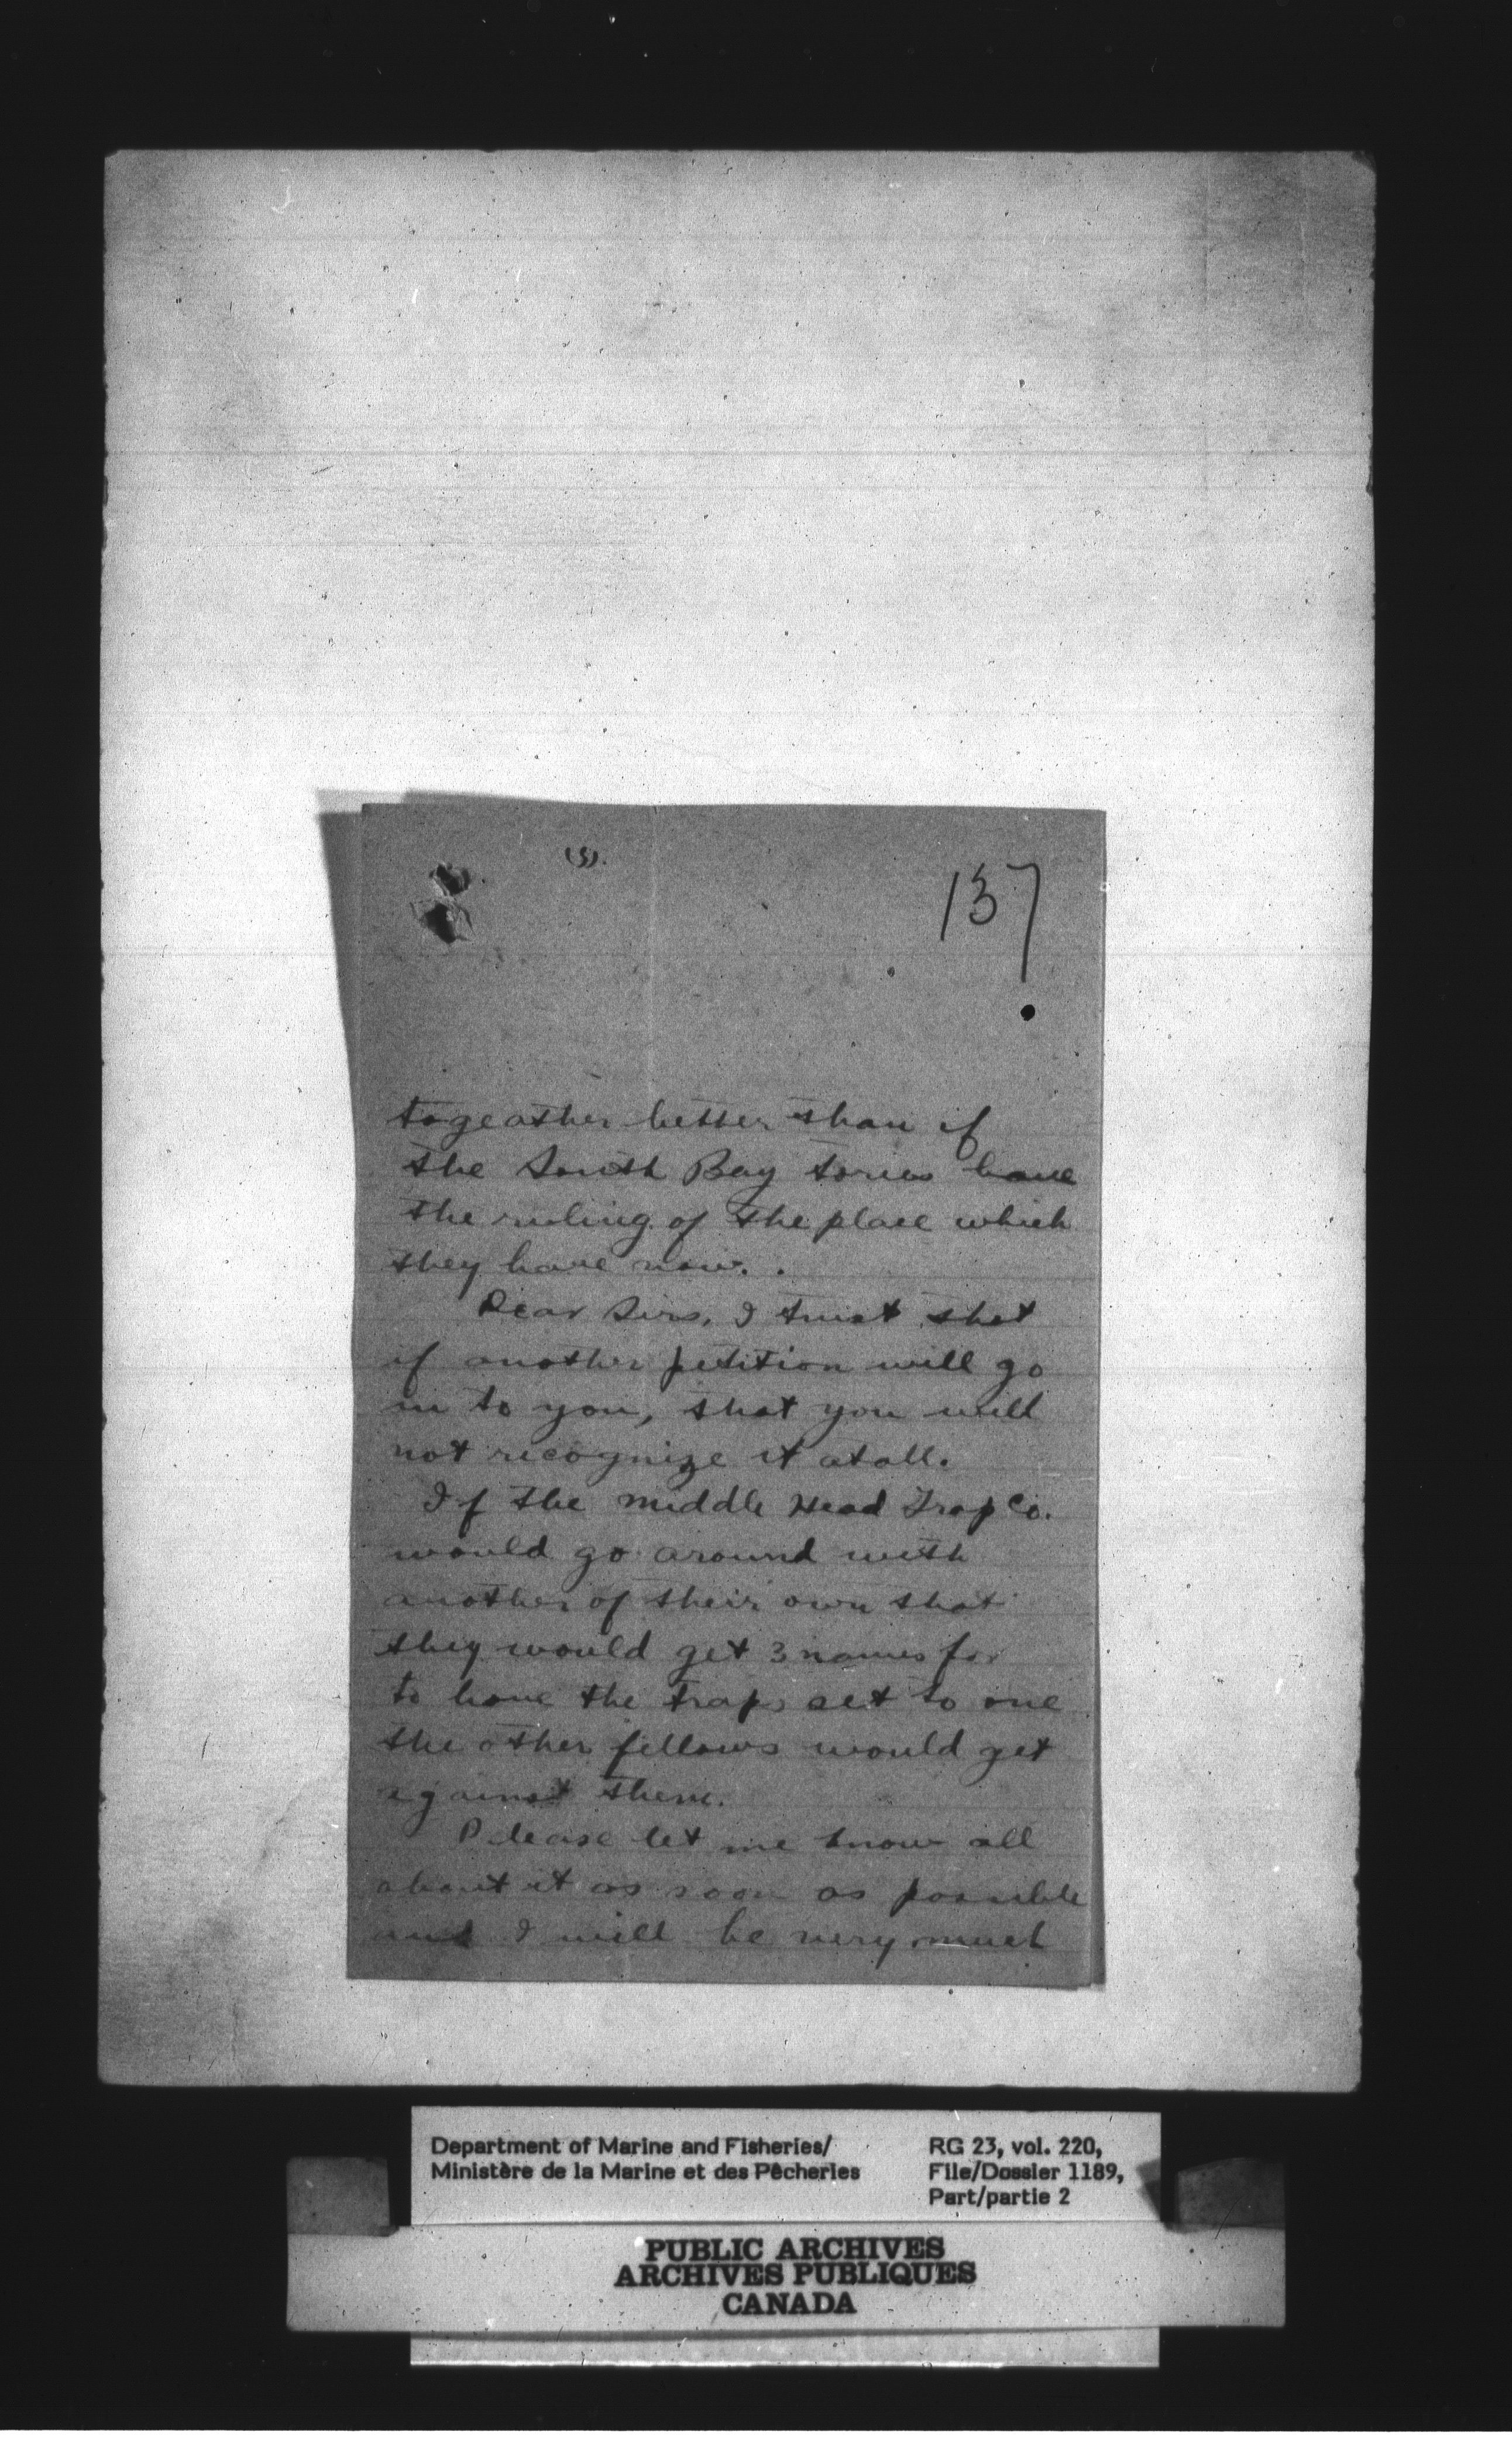 (5).
137
togeather better than if
the South Bay tories have
the ruling of the place which
they have now.
Dear Sirs, I trust that
if another petition will go
in to you, that you will
not recognize it atall.
If the Middle Head Trap Co.
would go around with
another of their own that
they would get 3 names for
to have the traps set to one
the other fellows would get
against them.
Please let me know all
about it as soon as possible
and I will be very much
Department of Marine and Fisheries/
Ministère de la Marine et des Pêcheries
RG 23, vol. 220,
File/Dossier 1189,
Part/partie 2
PUBLIC ARCHIVES
ARCHIVES PUBLIQUES
CANADA